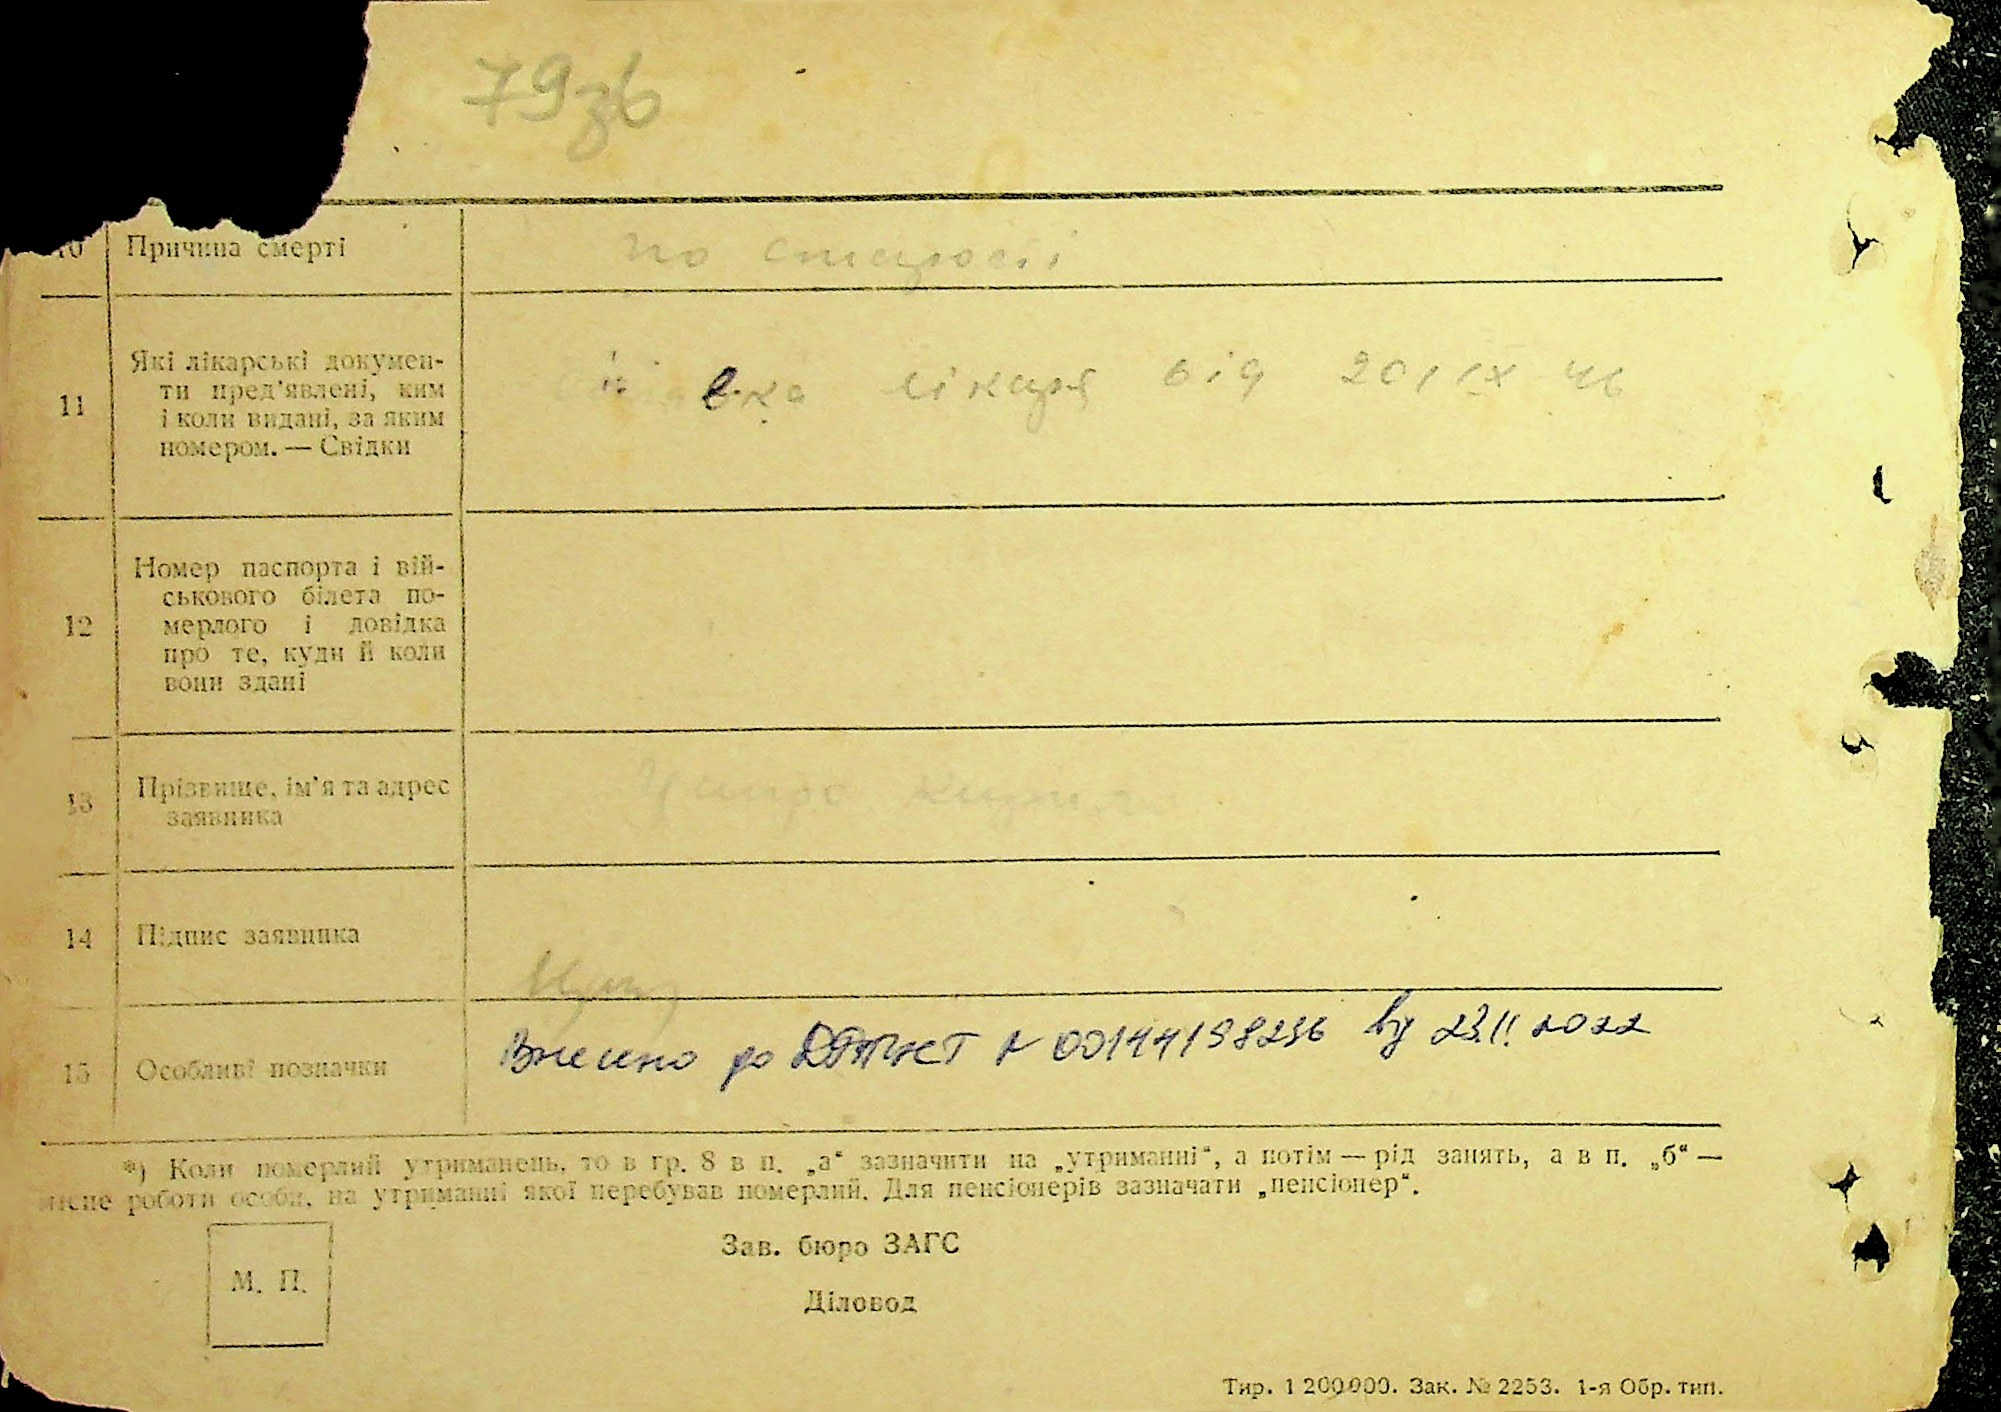 79зв
10 Причина смерті по старості
11 Які лікарські докумен-
ти пред'явлені, ким
і коли видані, за яким
номером. — Свідки
лікаря від 20/IX 46
12 Номер паспорта і вій-
ськового білета по-
мерлого і довідка
про те, куди й коли
вони здані
13 Прізвище, ім'я та адрес
заявника
14 Підпис заявника
15 Особливі позначки
Внесено до ДРАЦСГ № 00144198236 від 23.11.2022
*) Коли померлий утриманець, то в гр. 8 в п. „а“ зазначити на „утриманні“, а потім — рід занять, а в п. „б“ —
місце роботи особи, на утриманні якої перебував померлий. Для пенсіонерів зазначати „пенсіонер“.
М. П.
Зав. бюро ЗАГС
Діловод
Тир. 1 200000. Зак. № 2253. 1-я Обр. тип.